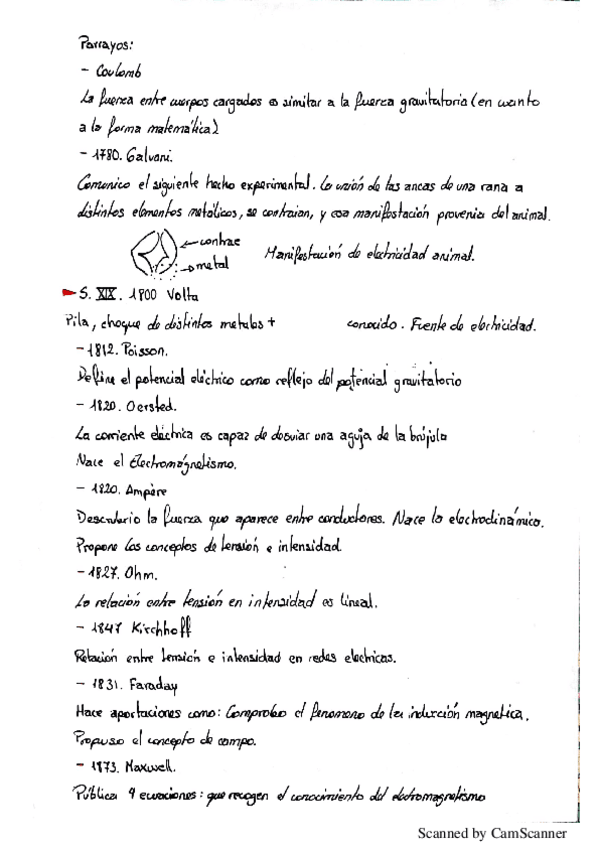 Parrayos:
- Coulomb
La fuerza entre cuerpos cargados es similar a la fuerza gravitatoria (en cuanto
a la forma matemática)
- 1780. Galvani.
Comunico el siguiente hecho experimental. La unión de las ancas de una rana a
distintos elementos metálicos, se contraian, y esa manifestación provenia del animal.
contrae
metal
Manifestación de electricidad animal.
S. XIX. 1800 Volta
Pila, choque de distintos metales + conocido. Fuente de electricidad.
- 1812. Poisson.
Define el potencial eléctrico como reflejo del potencial gravitatorio
- 1820. Oersted.
La corriente eléctrica es capaz de desviar una aguja de la brújula
Nace el Electromagnetismo.
- 1820. Ampère
Descubrio la fuerza que aparece entre conductores. Nace la electrodinámica.
Propone los conceptos de tensión e intensidad.
- 1827. Ohm.
La relación entre tensión en intensidad es lineal.
- 1847 Kirchhoff
Relación entre tensión e intensidad en redes electricas.
- 1831. Faraday
Hace aportaciones como: Comprobo el fenomeno de la inducción magnetica.
Propuso el concepto de campo.
- 1873. Maxwell.
Publica 4 ecuaciones: que recogen el conocimiento del electromagnetismo
Scanned by CamScanner